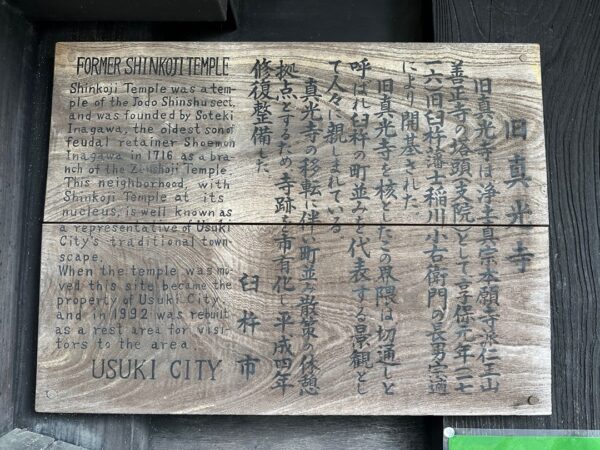 FORMER SHINKOJI TEMPLE
Shinkoji Temple was a tem-
ple of the Jodo Shinshu sect,
and was founded by Soteki
Inagawa, the oldest son of
feudal retainer Shoemon
Inagawa in 1716 as a bra-
nch of the Zenshoji Temple.
This neighborhood, with
Shinkoji Temple at its
nucleus, is well known as
a representative of Usuki
City's traditional town-
scape.
When the temple was mo-
ved this site became the
property of Usuki City,
and in 1992 was rebuilt
as a rest area for visi-
tors to the area.
USUKI CITY
旧真光寺
旧真光寺は、浄土真宗本願寺派仁王山
善正寺の塔頭(支院)として享保元年(一七
一六)旧臼杵藩士稲川小右衛門の長男宗適
により開基された。
旧真光寺を核としたこの界隈は、切通しと
呼ばれ臼杵の町並みを代表する景観とし
て人々に親しまれている。
真光寺の移転に伴い町並み散策の休憩
拠点とするため、寺跡を市有化し、平成四年
修復整備した。
臼杵市